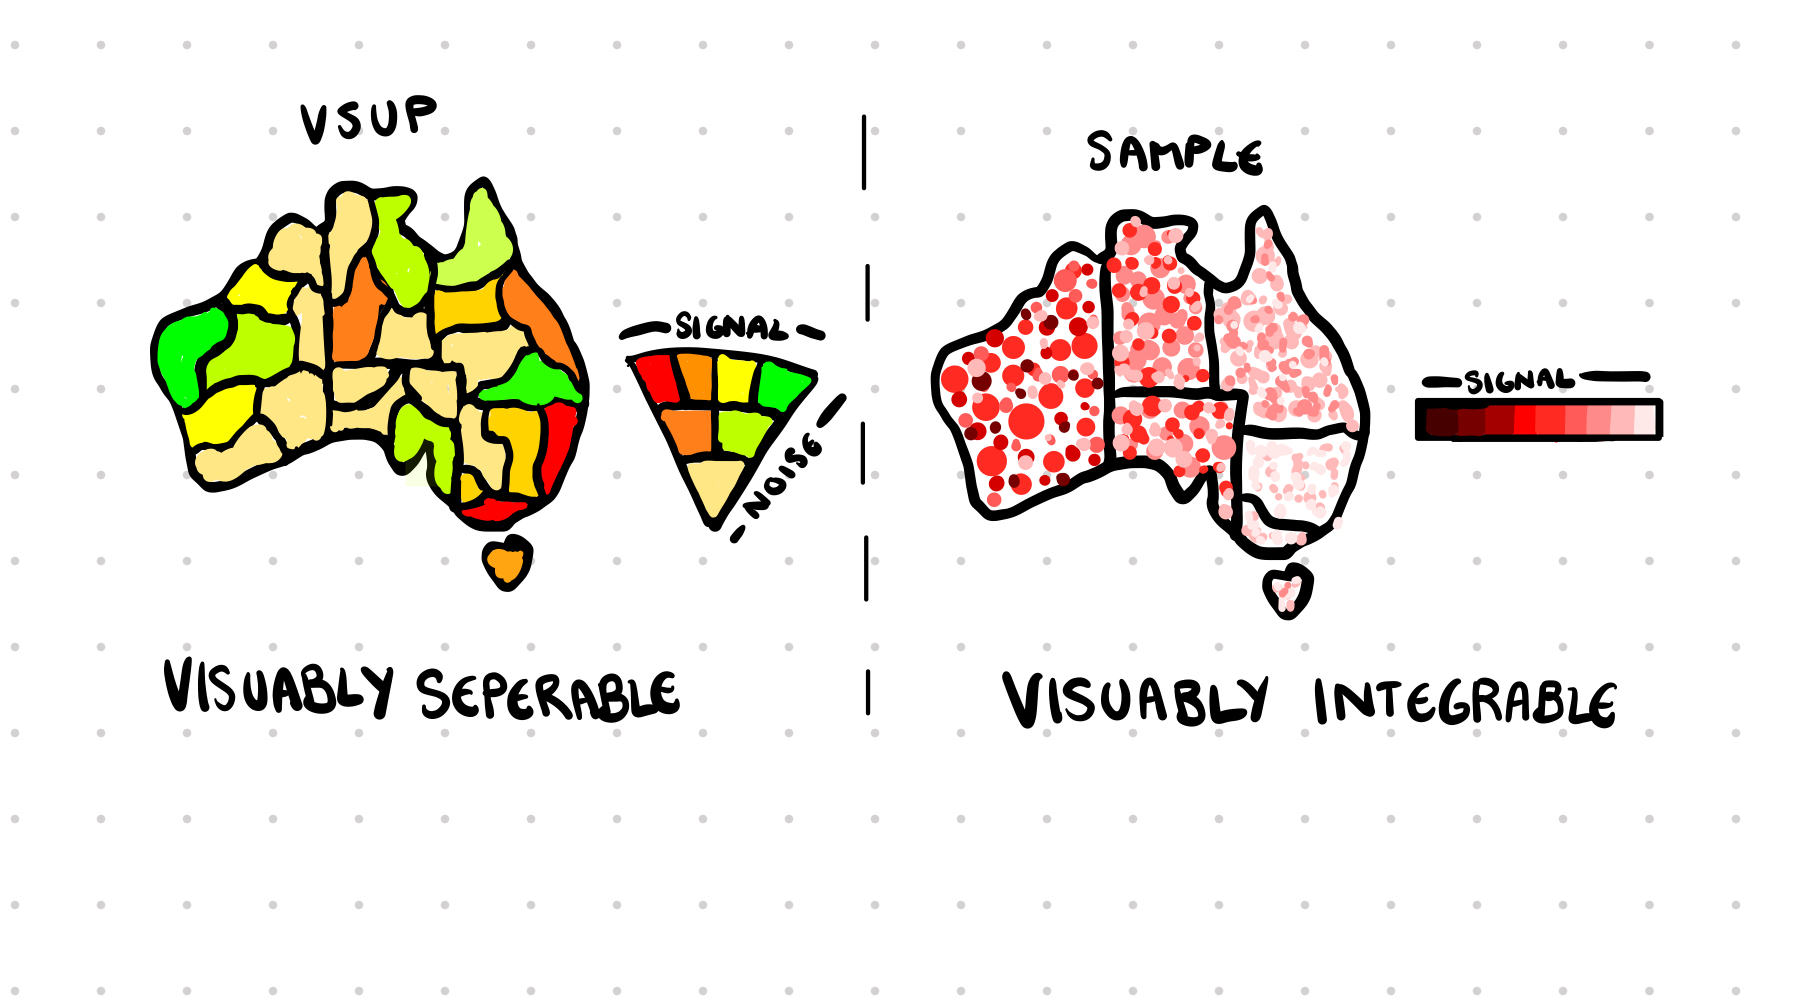 VSUP
SIGNAL
NOISE
VISUABLY SEPERABLE
SAMPLE
SIGNAL
VISUABLY INTEGRABLE